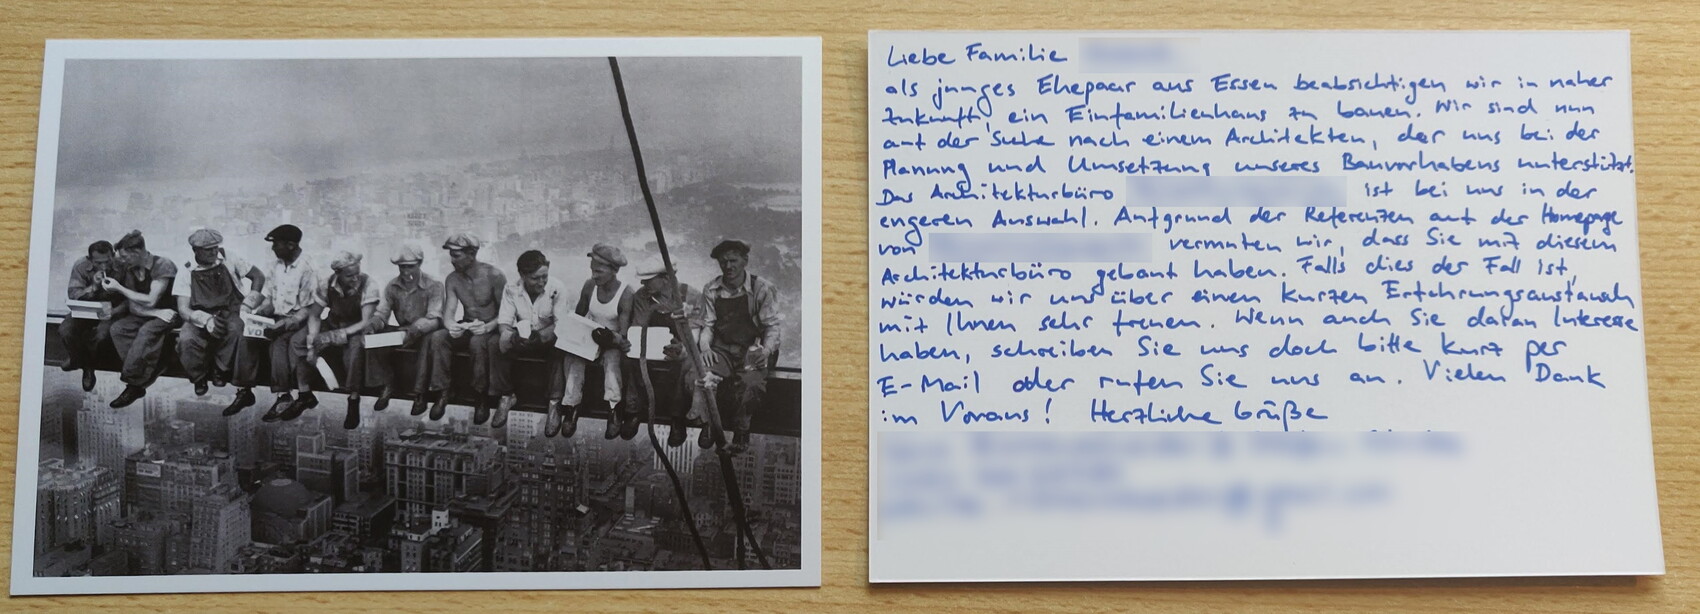 VO
Liebe Familie
als junges Ehepaar aus Essen beabsichtigen wir in naher
Zukunft, ein Einfamilienhaus zu bauen. Wir sind nun
auf der Suche nach einem Architekten, der uns bei der
Planung und Umsetzung unseres Bauvorhabens unterstützt.
Das Architekturbüro ist bei uns in der
engeren Auswahl. Aufgrund der Referenzen auf der Homepage
von vermuten wir, dass Sie mit diesem
Architekturbüro gebaut haben. Falls dies der Fall ist,
würden wir uns über einen kurzen Erfahrungsaustausch
mit Ihnen sehr freuen. Wenn auch Sie daran Interesse
haben, schreiben Sie uns doch bitte kurz per
E-Mail oder rufen Sie uns an. Vielen Dank
im Voraus! Herzliche Grüße